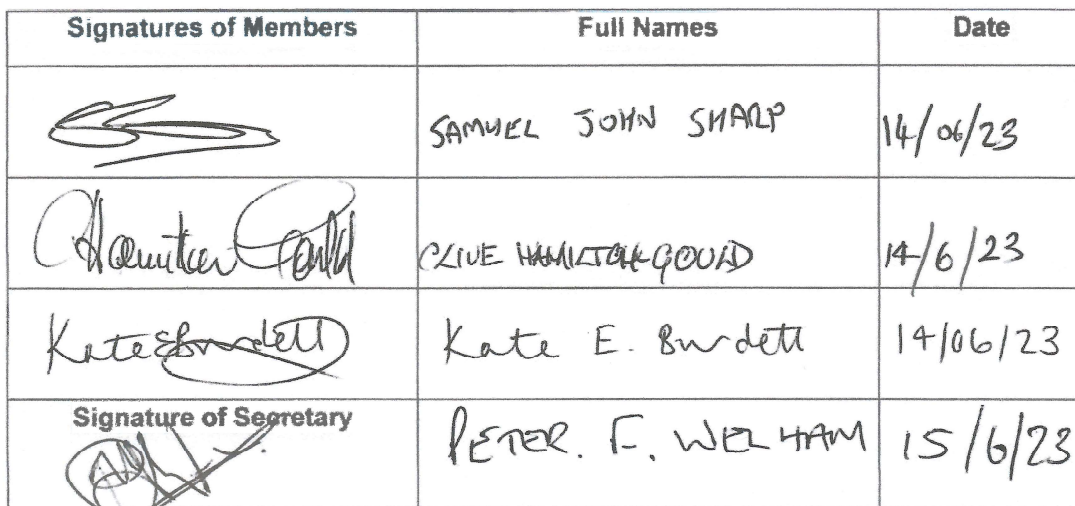 Signatures of Members Full Names Date
SAMUEL JOHN SHARP 14/06/23
Hamilton Gould CLIVE HAMILTON-GOULD 14/6/23
Kate E Burdett Kate E. Burdett 14/06/23
Signature of Secretary
PETER. F. WELHAM 15/6/23